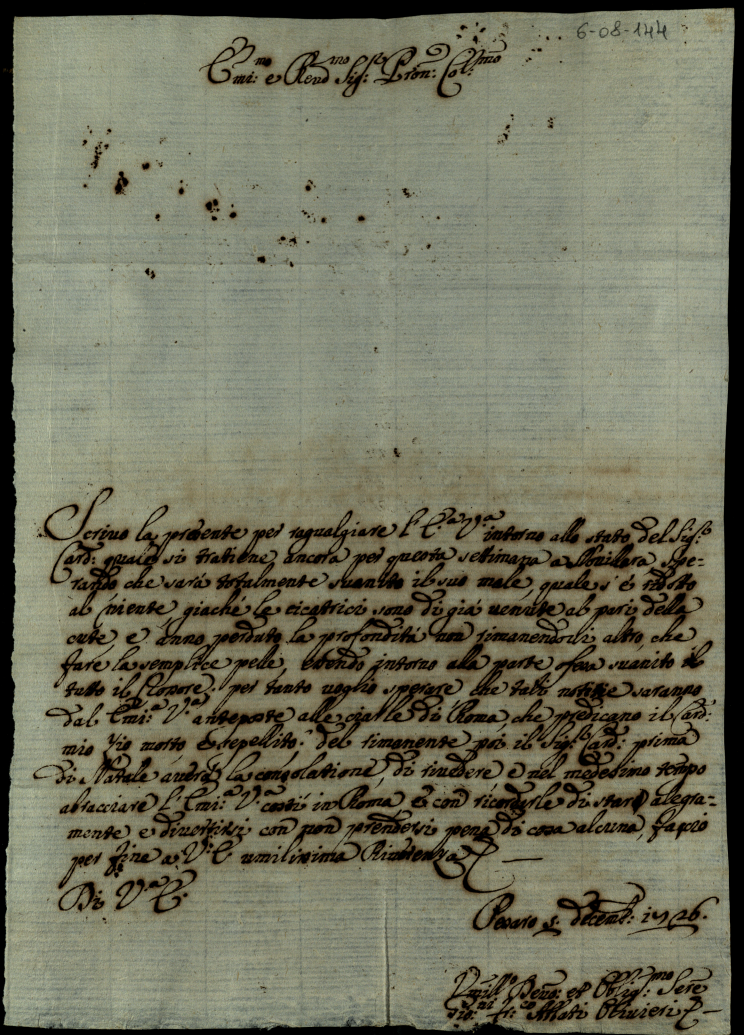 6-08-144
Emi:mo e Rend:mo Sig:r Pron: Col:mo
Scriuo la presente per raguagliare l'E.a V.a intorno allo stato del Sig:r
Card: quale si tratiene ancora per questa settimana a Nouilara spe-
rando che sarà totalmente suanito il suo male, quale s'è ridotto
al niente, giaché le cicatrici sono di già uenute al pari della
cute e anno perduto la profondità non rimanendoli altro, che
fare la semplice pelle, essendo intorno alla parte ofesa suanito il
tutto il per tanto uoglio sperare che tali notizie saranno
dal Emi:a V.a anteposte alle ciarle di Roma, che predicano il Card:
mio Zio morto e sepellito: del rimanente poi il Sig:r Card: prima
di Natale auerà la consolatione di riuedere e nel medesimo tempo
abracciare l'Emi:a V.a costì in Roma e con ricordarle di stare alegra-
mente e diuertirsi con non prendersi pena di cosa alcuna, faccio
per fine a V.E. umilissima Riuerenza
Di V.a E.
Pesaro 5. decemb: 1726.
Umill:o Deuo: et Oblig:mo Sere
Fr:co Abbati Oliuieri